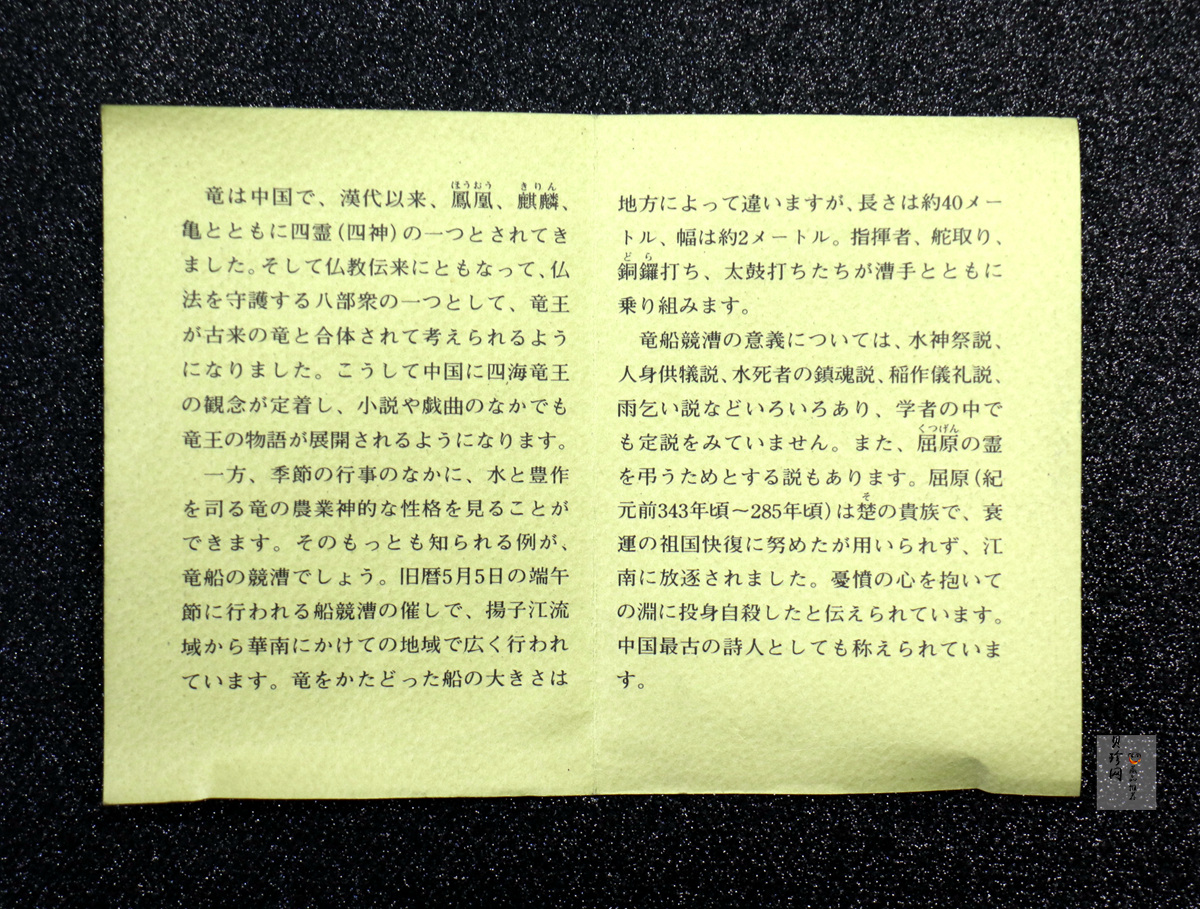 竜は中国で、漢代以来、鳳凰、麒麟、
亀とともに四霊(四神)の一つとされてき
ました。そして仏教伝来にともなって、仏
法を守護する八部衆の一つとして、竜王
が古来の竜と合体されて考えられるよう
になりました。こうして中国に四海竜王
の観念が定着し、小説や戯曲のなかでも
竜王の物語が展開されるようになります。
一方、季節の行事のなかに、水と豊作
を司る竜の農業神的な性格を見ることが
できます。そのもっとも知られる例が、
竜船の競漕でしょう。旧暦5月5日の端午
節に行われる船競漕の催しで、揚子江流
域から華南にかけての地域で広く行われ
ています。竜をかたどった船の大きさは
地方によって違いますが、長さは約40メー
トル、幅は約2メートル。指揮者、舵取り、
銅鑼打ち、太鼓打ちたちが漕手とともに
乗り組みます。
竜船競漕の意義については、水神祭説、
人身供犠説、水死者の鎮魂説、稲作儀礼説、
雨乞い説などいろいろあり、学者の中で
も定説をみていません。また、屈原の霊
を弔うためとする説もあります。屈原(紀
元前343年頃〜285年頃)は楚の貴族で、衰
運の祖国快復に努めたが用いられず、江
南に放逐されました。憂憤の心を抱いて
の淵に投身自殺したと伝えられています。
中国最古の詩人としても称えられていま
す。